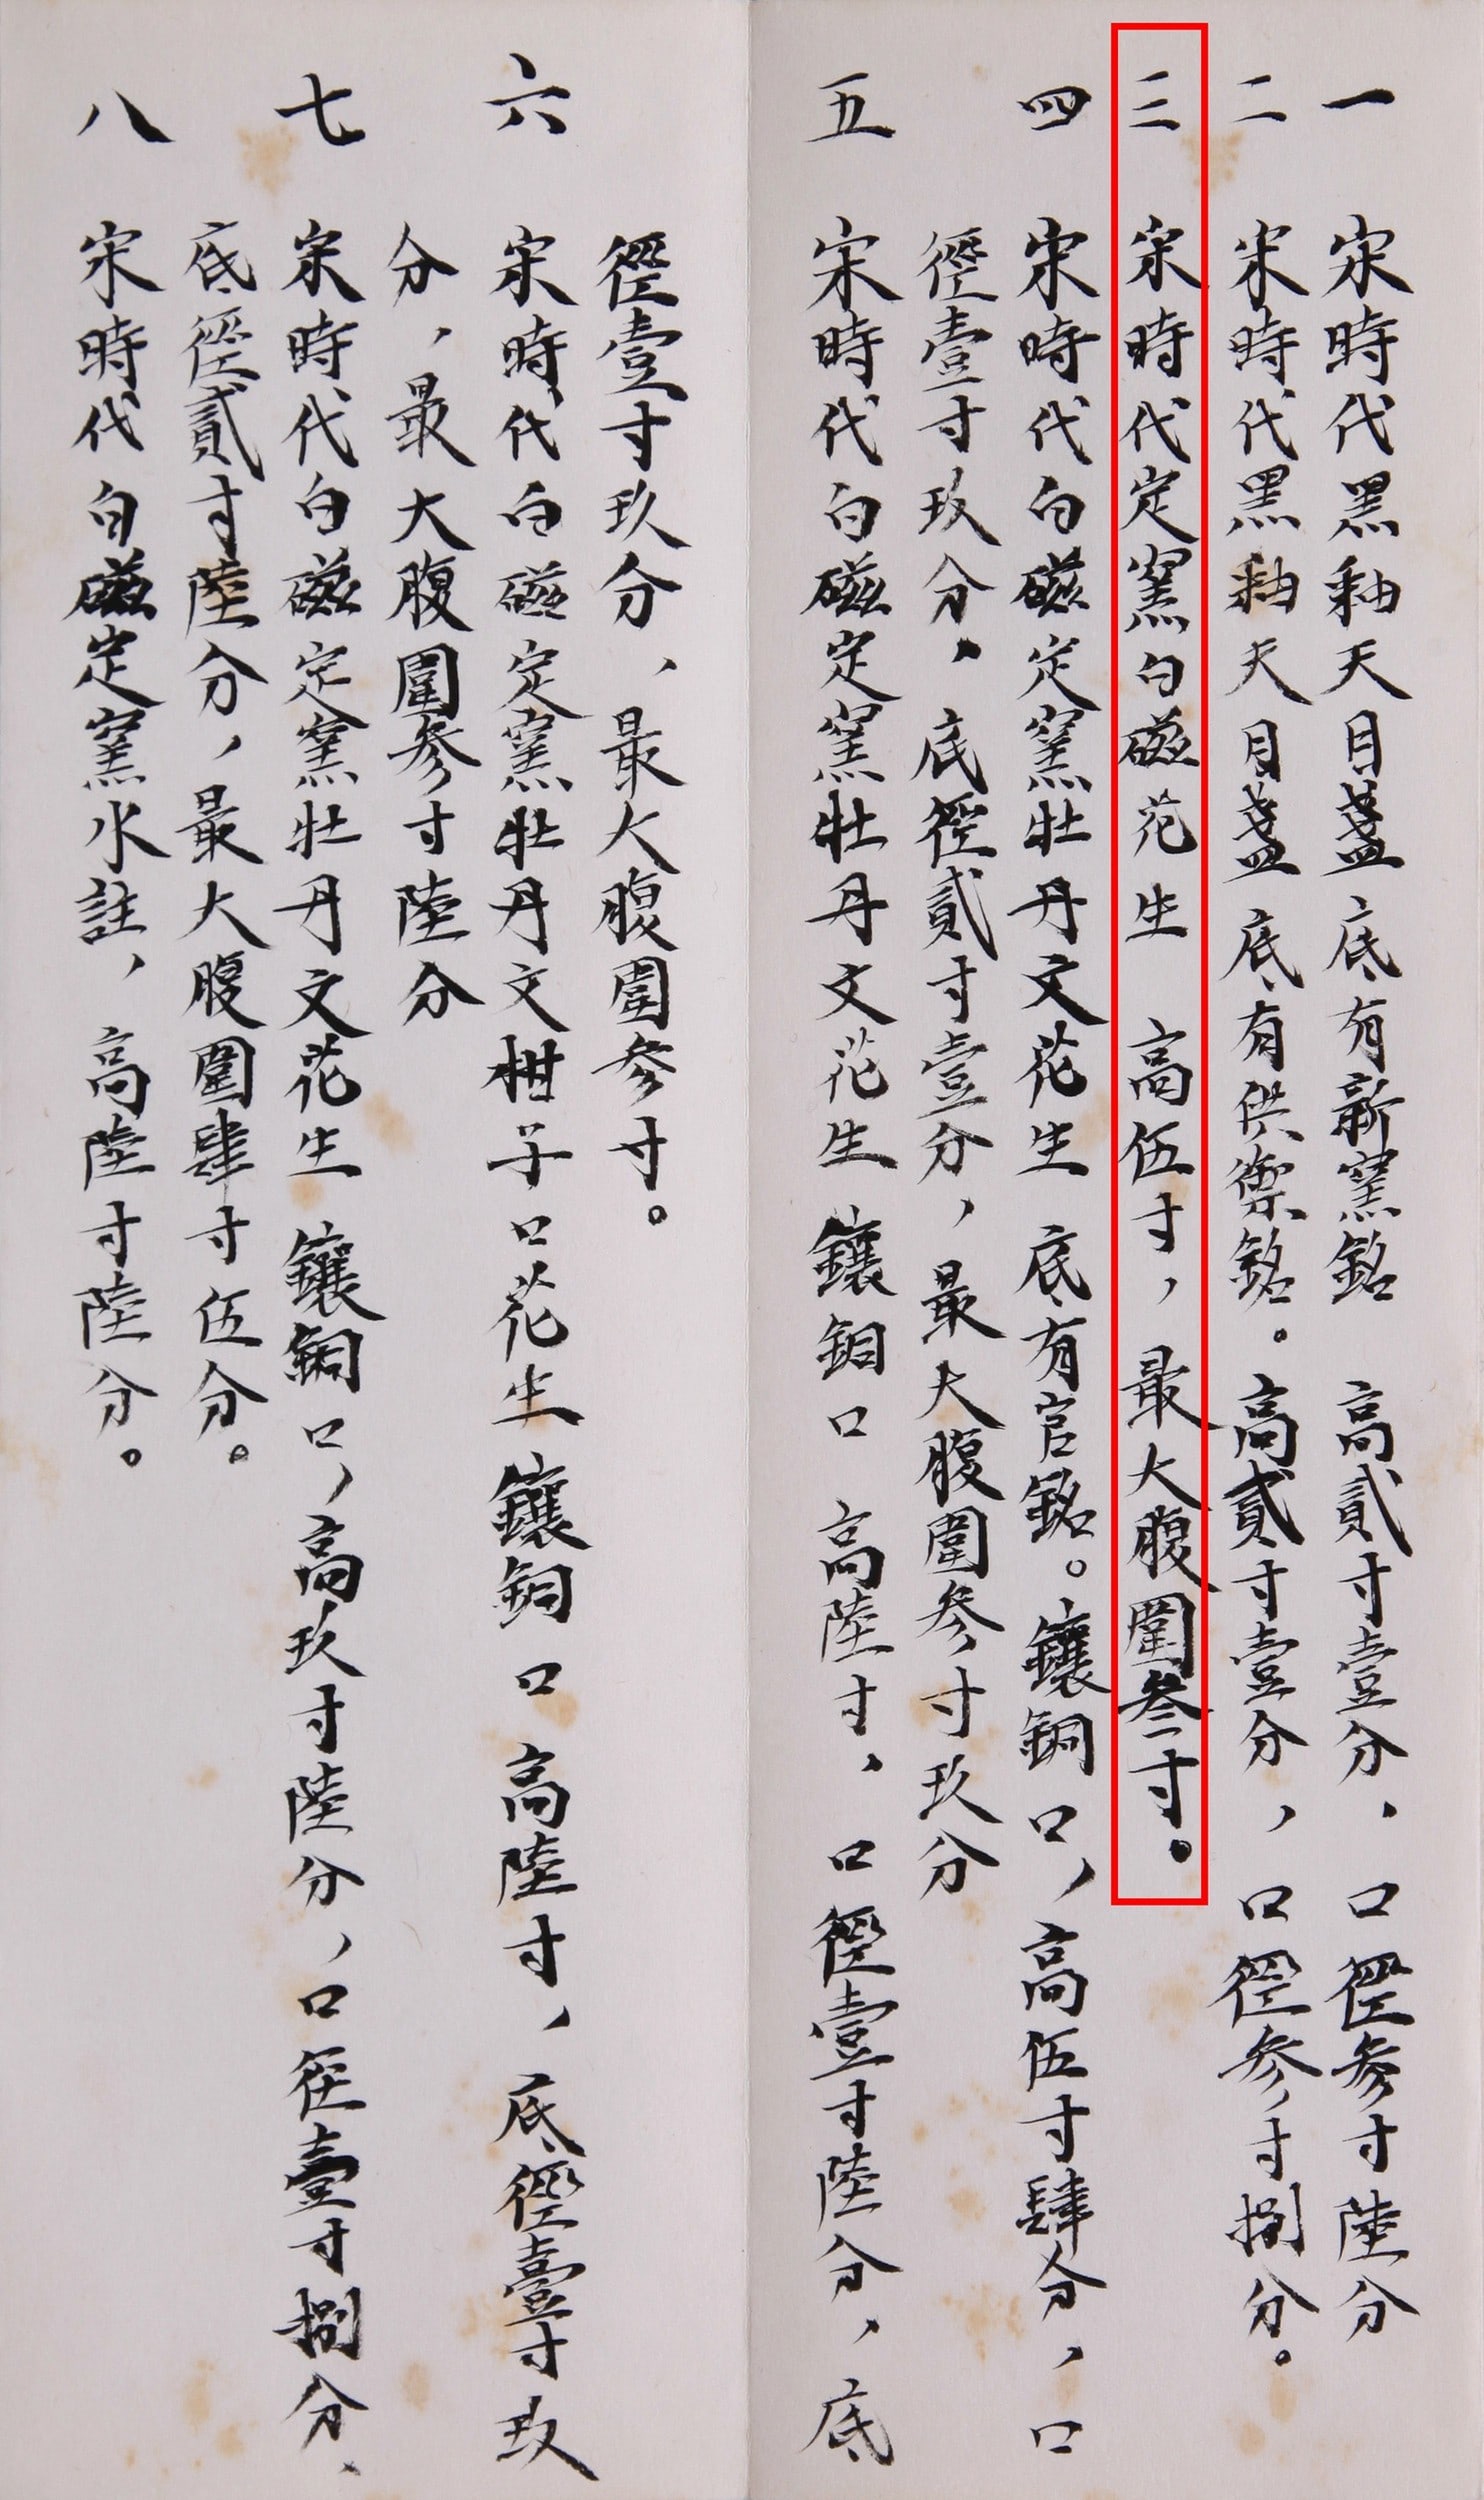 一 宋時代黑釉天目盏 底有新窯銘 高貳寸壹分、口徑参寸陸分
二 宋時代黑釉天目盏 底有供禦銘。高貳寸壹分，口徑参寸捌分。
三 宋時代定窯白磁花生 高伍寸，最大腹圍叁寸。
四 宋時代白磁定窯牡丹文花生 底有官銘。鑲銅口，高伍寸肆分，口
徑壹寸玖分、底徑貳寸壹分，最大腹圍参寸玖分
五 宋時代白磁定窯牡丹文花生 鑲銅口 高陸寸、口徑壹寸陸分，底
徑壹寸玖分、最大腹圍参寸。
六 宋時代白磁定窯牡丹文柑子口花生 鑲銅口 高陸寸，底徑壹寸玖
分，最大腹圍参寸陸分
七 宋時代白磁定窯牡丹文花生 鑲銅口，高玖寸陸分，口徑壹寸捌分、
底徑貳寸陸分，最大腹圍肆寸伍分。
八 宋時代白磁定窯水註，高陸寸陸分。